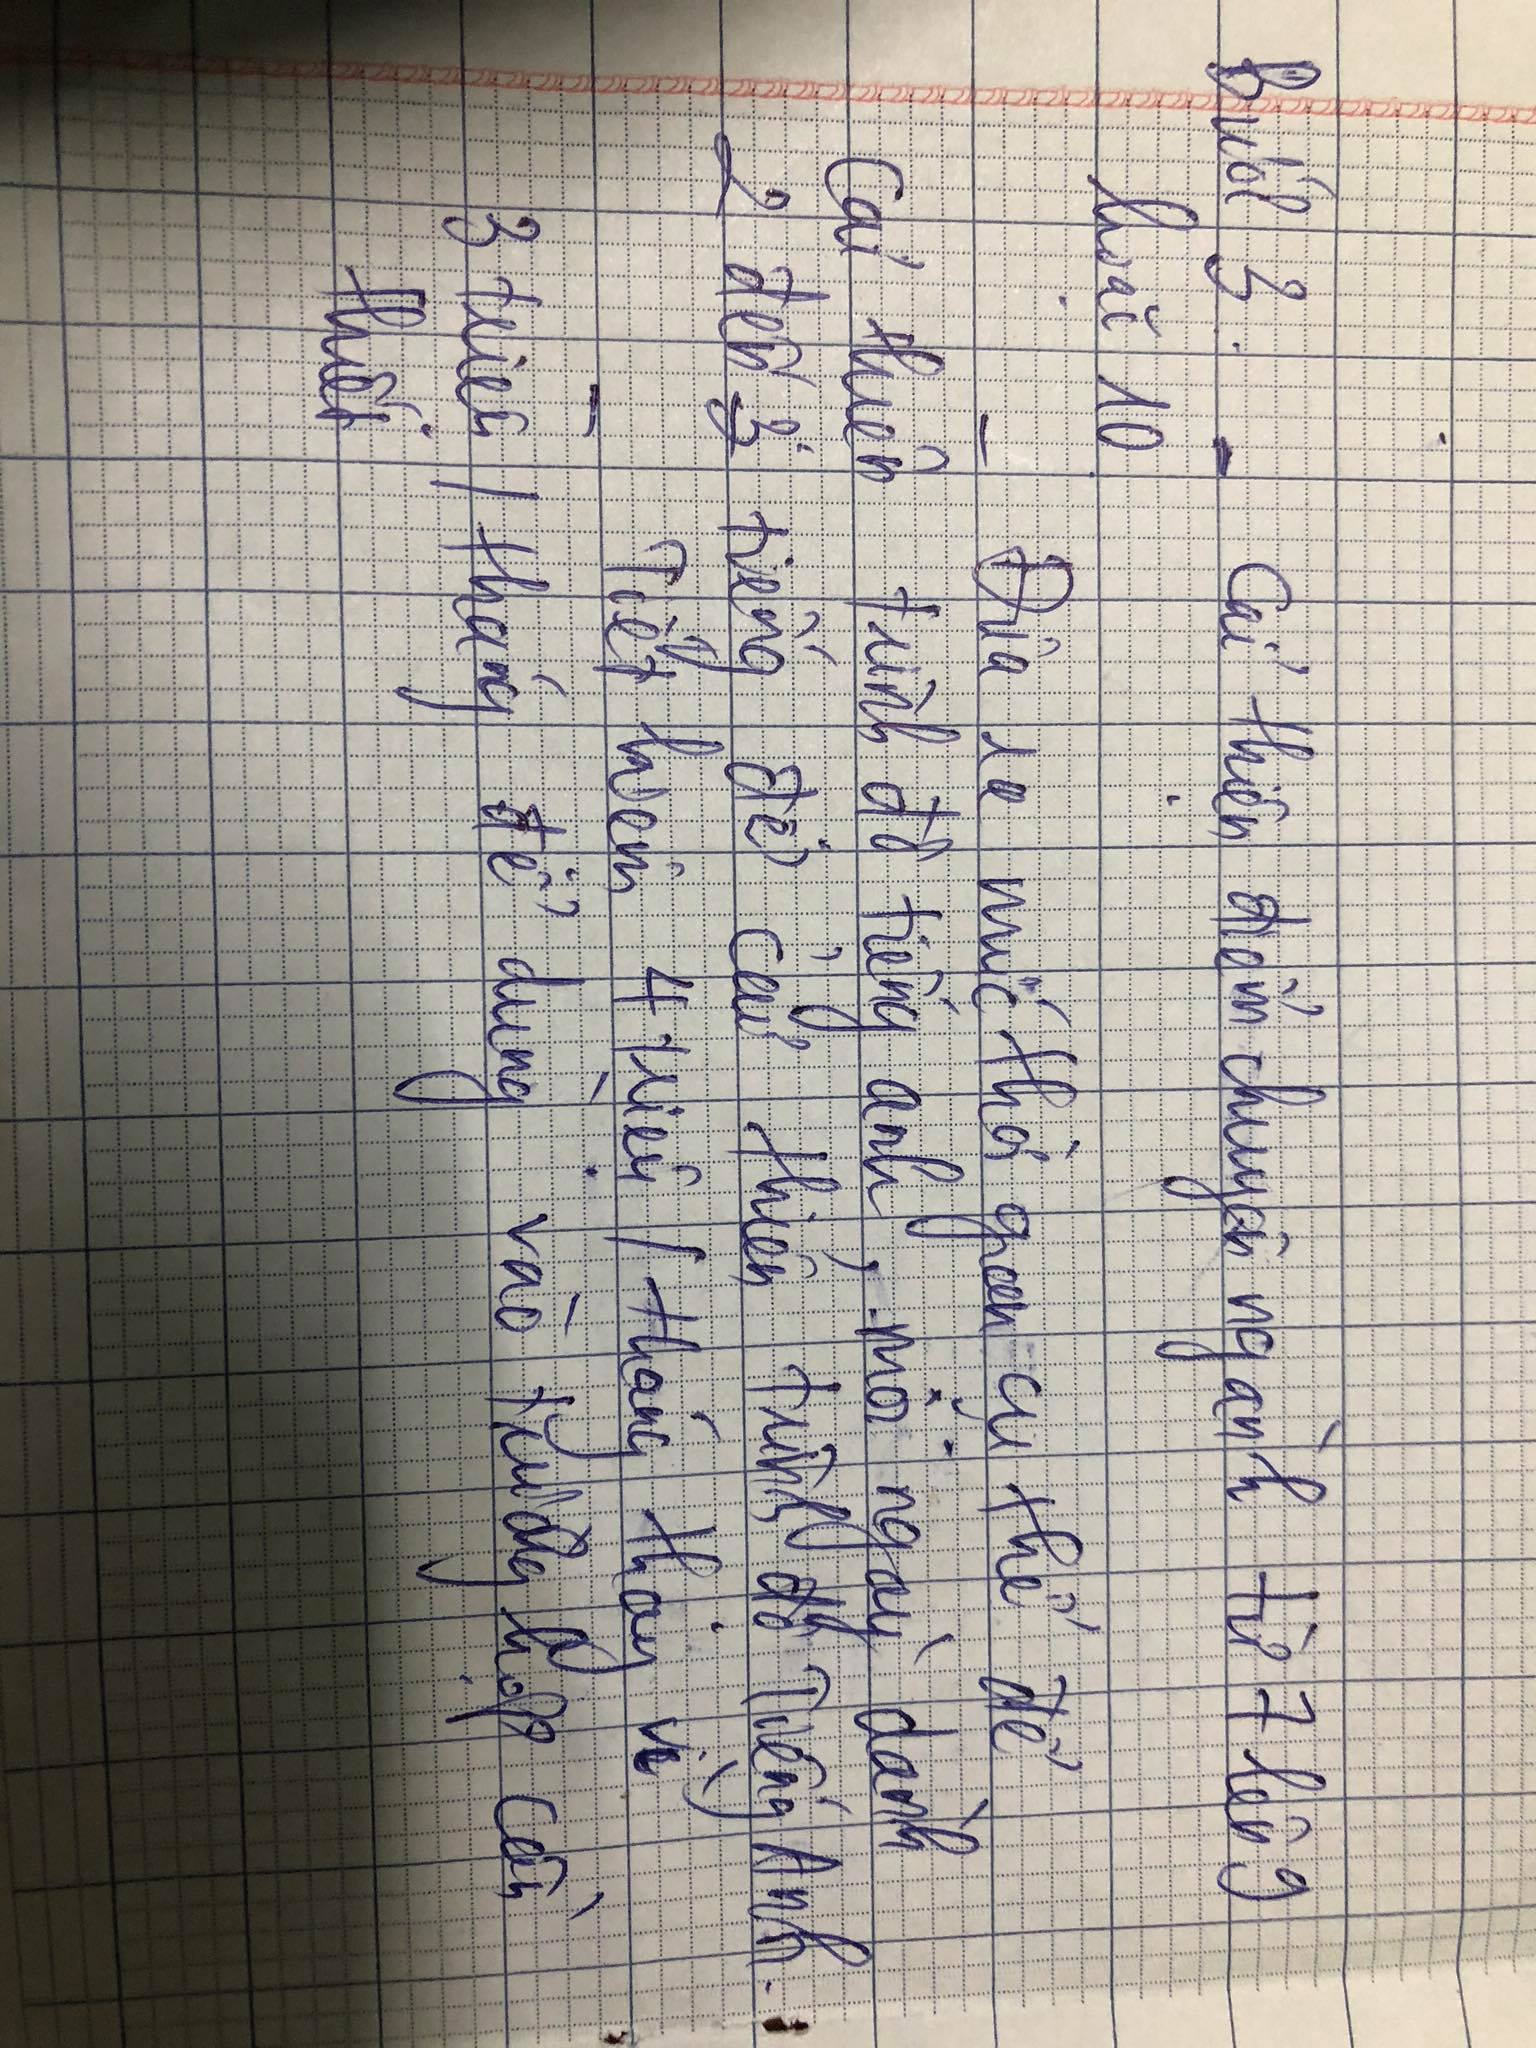 Buổi 3: - Cải thiện điểm chuyên ngành từ 7 lên 9
hoặc 10
- Đưa ra mức thời gian cụ thể để
Cải thiện trình độ tiếng anh, mỗi ngày dành
2 đến 3 tiếng để cải thiện trình độ Tiếng Anh.
- Tiết kiệm 4 triệu / tháng thay vì
3 triệu / tháng để dùng vào trường hợp cần
thiết